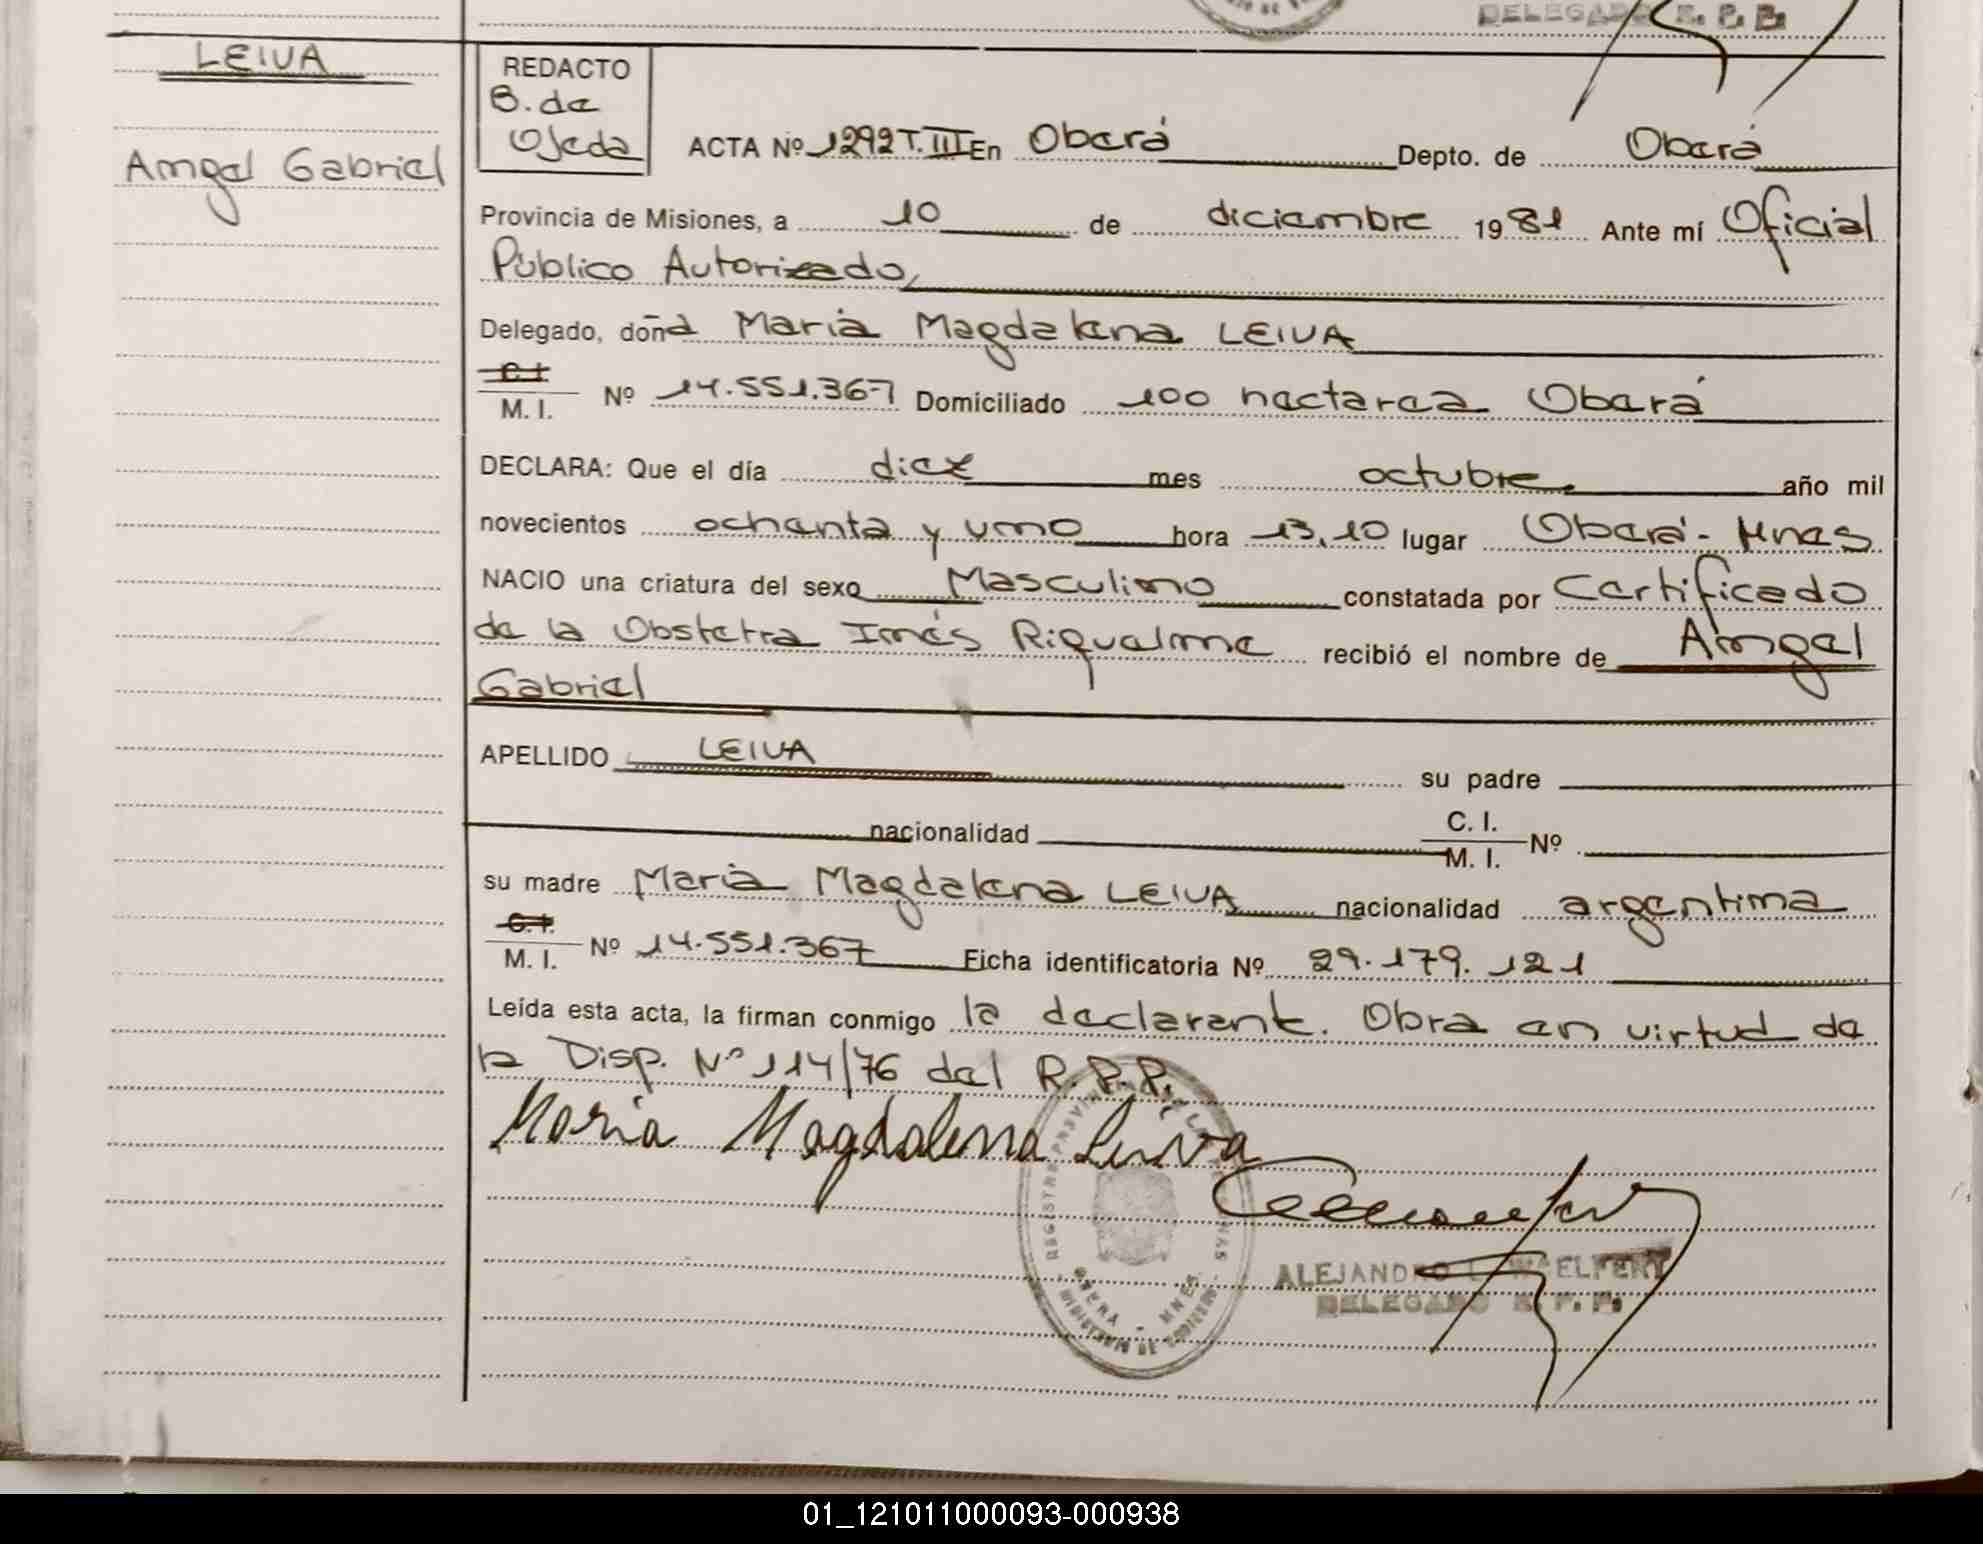 DELEGADO R. P. P.
LEIVA
Angel Gabriel
REDACTO
B. de
Ojeda
ACTA Nº 1292 T. III En Oberá Depto. de Oberá
Provincia de Misiones, a 10 de diciembre 1981 Ante mí Oficial
Público Autorizado,
Delegado, doña María Magdalena LEIVA
C. I.
M. I. Nº 14.551.367 Domiciliado 100 hectarea Oberá
DECLARA: Que el día diez mes octubre año mil
novecientos ochenta y uno hora 13,10 lugar Oberá - Mnes
NACIO una criatura del sexo Masculino constatada por Certificado
de la Obstetra Inés Riquelme recibió el nombre de Angel
Gabriel
APELLIDO LEIVA su padre
nacionalidad C. I.
M. I. Nº
su madre María Magdalena LEIVA nacionalidad argentina
C. I.
M. I. Nº 14.551.367 Ficha identificatoria Nº 29.179.121
Leída esta acta, la firman conmigo la declarante. Obra en virtud de
la Disp. Nº 114/76 del R. P. P.
Maria Magdalena Leiva
OBERA - MNES.
MINISTERIO DE GOBIERNO
ALEJANDRO L. WAELFERT
DELEGADO R. P. P.
01_121011000093-000938